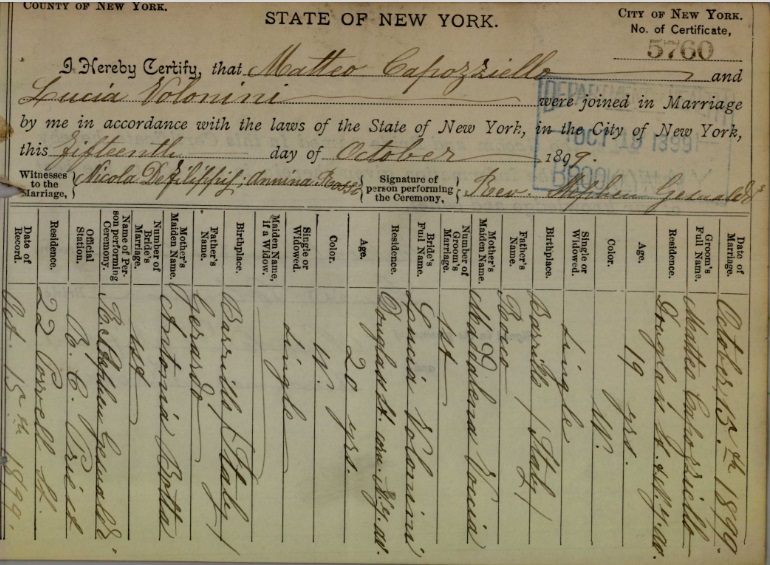 COUNTY OF NEW YORK.
STATE OF NEW YORK.
CITY OF NEW YORK.
No. of Certificate,
5760
I Hereby Certify, that Matteo Capozziello and
Lucia Volonini were joined in Marriage
by me in accordance with the laws of the State of New York, in the City of New York,
this fifteenth day of October 1899.
Witnesses to the Marriage, Nicola
Signature of person performing the Ceremony, Stephen Gesualdi
Date of Marriage. October, 15th 1899.
Groom's Full Name. Matteo Capozziello
Residence. Douglass St. & N.Y. av.
Age. 19 yrs.
Color. W.
Single or Widowed. Single
Birthplace. Barrillo (Italy)
Father's Name. Rocco
Mother's Maiden Name. Maddalena Voccia
Number of Groom's Marriage. 1st
Bride's Full Name. Lucia Volonini
Residence. Douglass St. corn. N.Y. av.
Age. 20 yrs.
Color. W.
Single or Widowed. Single
Maiden Name, if a Widow.
Birthplace. Barrillo (Italy)
Father's Name. Gerardo
Mother's Maiden Name. Antonia Botta
Number of Bride's Marriage. 1st
Name of Person performing Ceremony. R. Stephen Gesualdi
Official Station. R. C. Priest
Residence. 22 Powell St.
Date of Record. Oct. 15th 1899.